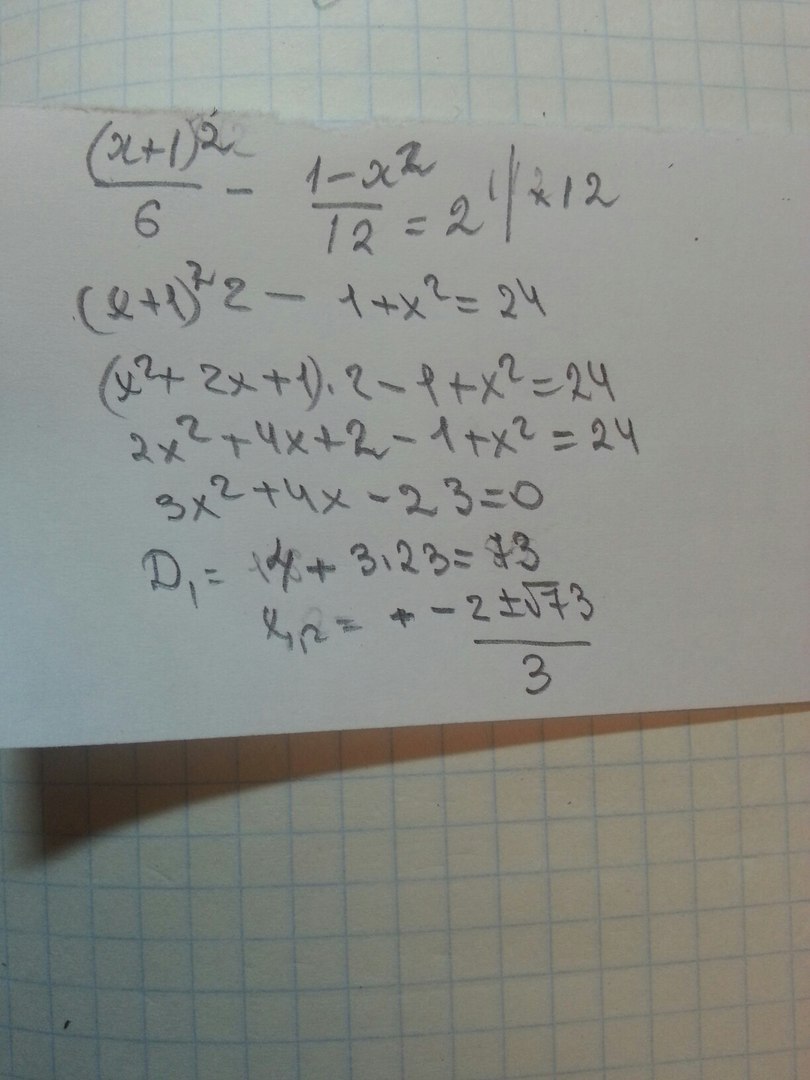 (x+1)²/6 - 1-x²/12 = 2 | ×12
(x+1)²2 - 1+x² = 24
(x²+2x+1)·2-1+x²=24
2x²+4x+2-1+x²=24
3x²+4x-23=0
D₁= 4+3·23=73
x₁,₂= -2±√73/3